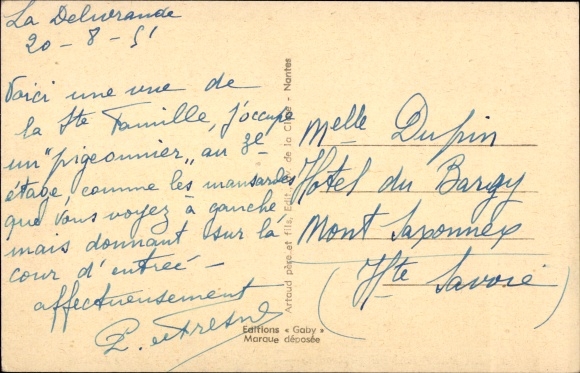 La Delivrande
20-8-51
Voici une vue de
la Ste Famille, j'occupe
un "pigeonnier" au 3e
étage, comme les mansardes
que vous voyez à gauche
mais donnant sur la
cour d'entrée -
affectueusement
Artaud père et fils, Edit. de la Cité - Nantes
Editions « Gaby »
Marque déposée
Melle Dupin
Hôtel du Bargy
Mont Saxonnex
(Hte Savoie)